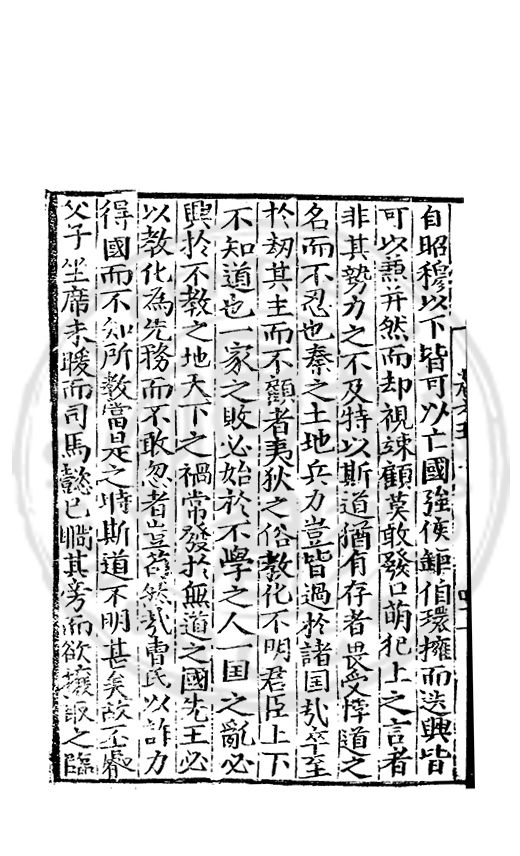 自昭穆以下皆可以亡國強侯鉅伯環擁而迭興皆
可以兼并然而却視竦顧莫敢發口萌犯上之言者
非其勢力之不及特以斯道猶有存者畏受悖道之
名而不忍也秦之土地兵力豈皆過於諸国㢤卒至
於刼其主而不顧者夷狄之俗教化不明君臣上下
不知道也一家之敗必始於不學之人一国之亂必
興於不教之地天下之禍常發於無道之國先王必
以教化為先務而不敢忽者豈苟然㢤曹氏以詐力
得國而不知所教當是之時斯道不明甚矣故丕叡
父子坐席未暖而司馬懿已瞯其旁而欲攘取之臨